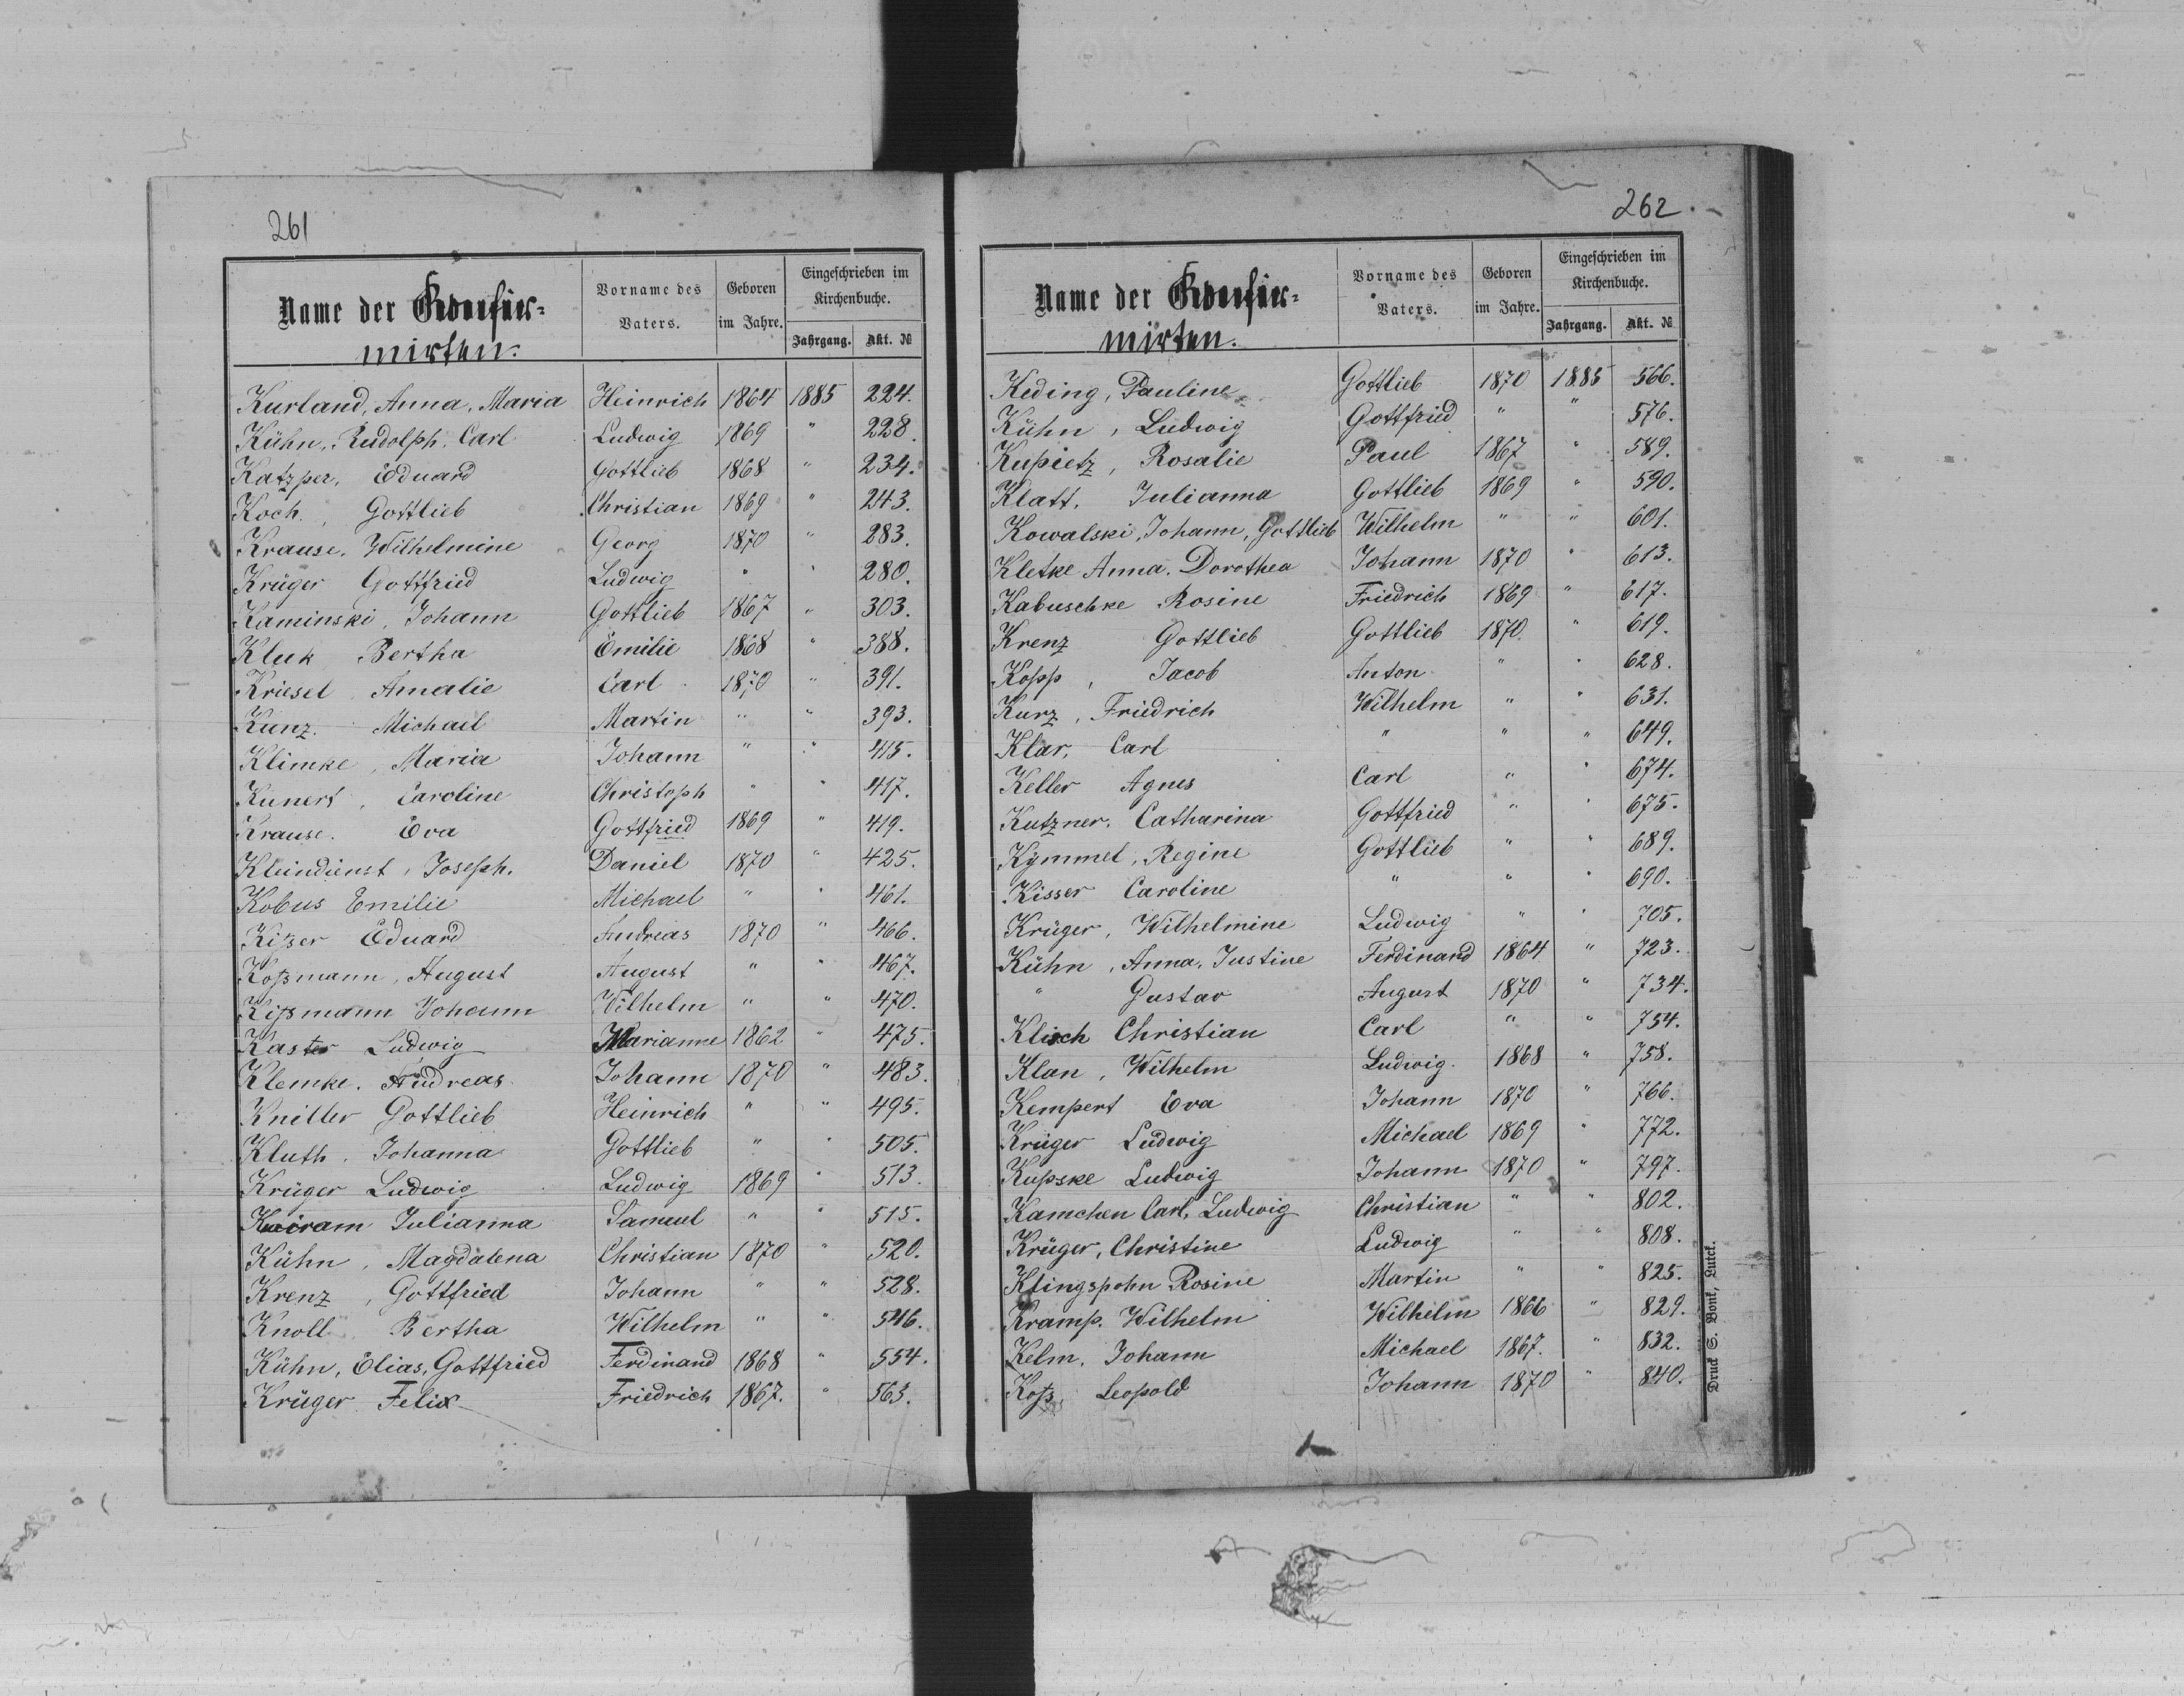 261
Name der Konfir-
mirten.
Vorname des Vaters.
Geboren im Jahre.
Eingeschrieben im Kirchenbuche.
Jahrgang. Akt. №
Kurland, Anna, Maria Heinrich 1864 1885 224.
Kühn, Rudolph, Carl Ludwig 1869 " 228.
Katzper, Eduard Gottlieb 1868 " 234.
Koch, Gottlieb Christian 1869 " 243.
Krause, Wilhelmine Georg 1870 " 283.
Krüger Gottfried Ludwig " " 280.
Kaminski, Johann Gottlieb 1867 " 303.
Kluk Bertha Emilie 1868 " 388.
Kriesel Amalie Carl 1870 " 391.
Kunz. Michael Martin " " 393.
Klimke, Maria Johann " " 415.
Kunert, Caroline Christoph " " 417.
Krause. Eva Gottfried 1869 " 419.
Kleindienst, Joseph. Daniel 1870 " 425.
Kobus Emilie Michael " " 461.
Kißer Eduard Andreas 1870 " 466.
Koßmann, August August " " 467.
Kißmann Johann Wilhelm " " 470.
Kaster Ludwig Marianne 1862 " 475.
Klemke. Andreas Johann 1870 " 483.
Kniller Gottlieb Heinrich " " 495.
Kluth. Johanna Gottlieb " " 505.
Krüger Ludwig Ludwig 1869 " 513.
Julianna Samuel " " 515.
Kühn, Magdalena Christian 1870 " 520.
Krenz, Gottfried Johann " " 528.
Knoll Bertha Wilhelm " " 546.
Kühn, Elias, Gottfried Ferdinand 1868 " 554.
Krüger Felix Friedrich 1867. " 563.
262.
Name der Konfir-
mirten.
Vorname des Vaters.
Geboren im Jahre.
Eingeschrieben im Kirchenbuche.
Jahrgang. Akt. №
Keding, Pauline Gottlieb 1870 1885 566.
Kühn, Ludwig Gottfried " " 576.
Kupietz, Rosalie Paul 1867 " 589.
Klatt, Julianna Gottlieb 1869 " 590.
Kowalski, Johann, Gottlieb Wilhelm " " 601.
Kletke Anna. Dorothea Johann 1870 " 613.
Kabuschke Rosine Friedrich 1869 " 617.
Krenz Gottlieb Gottlieb 1870. " 619.
Kopp, Jacob Anton " " 628.
Kurz, Friedrich Wilhelm " " 631.
Klar, Carl " " " 649.
Keller Agnes Carl " " 674.
Kutzner. Catharina Gottfried " " 675.
Kymmel, Regine Gottlieb " " 689.
Kisser Caroline " " " 690.
Krüger, Wilhelmine Ludwig " " 705.
Kühn, Anna, Justine Ferdinand 1864 " 723.
" Gustav August 1870 " 734.
Klisch Christian Carl " " 754.
Klan, Wilhelm Ludwig. 1868 " 758.
Kempert Eva Johann 1870 " 766.
Krüger Ludwig Michael 1869 " 772.
Kupske Ludwig Johann 1870 " 797.
Kamchen Carl, Ludwig Christian " " 802.
Krüger, Christine Ludwig " " 808.
Klingspohn Rosine Martin " " 825.
Kramp. Wilhelm Wilhelm 1866 " 829.
Kelm, Johann Michael 1867. " 832.
Koß Leopold Johann 1870 " 840.
Druck S. Bonk, Lutck.